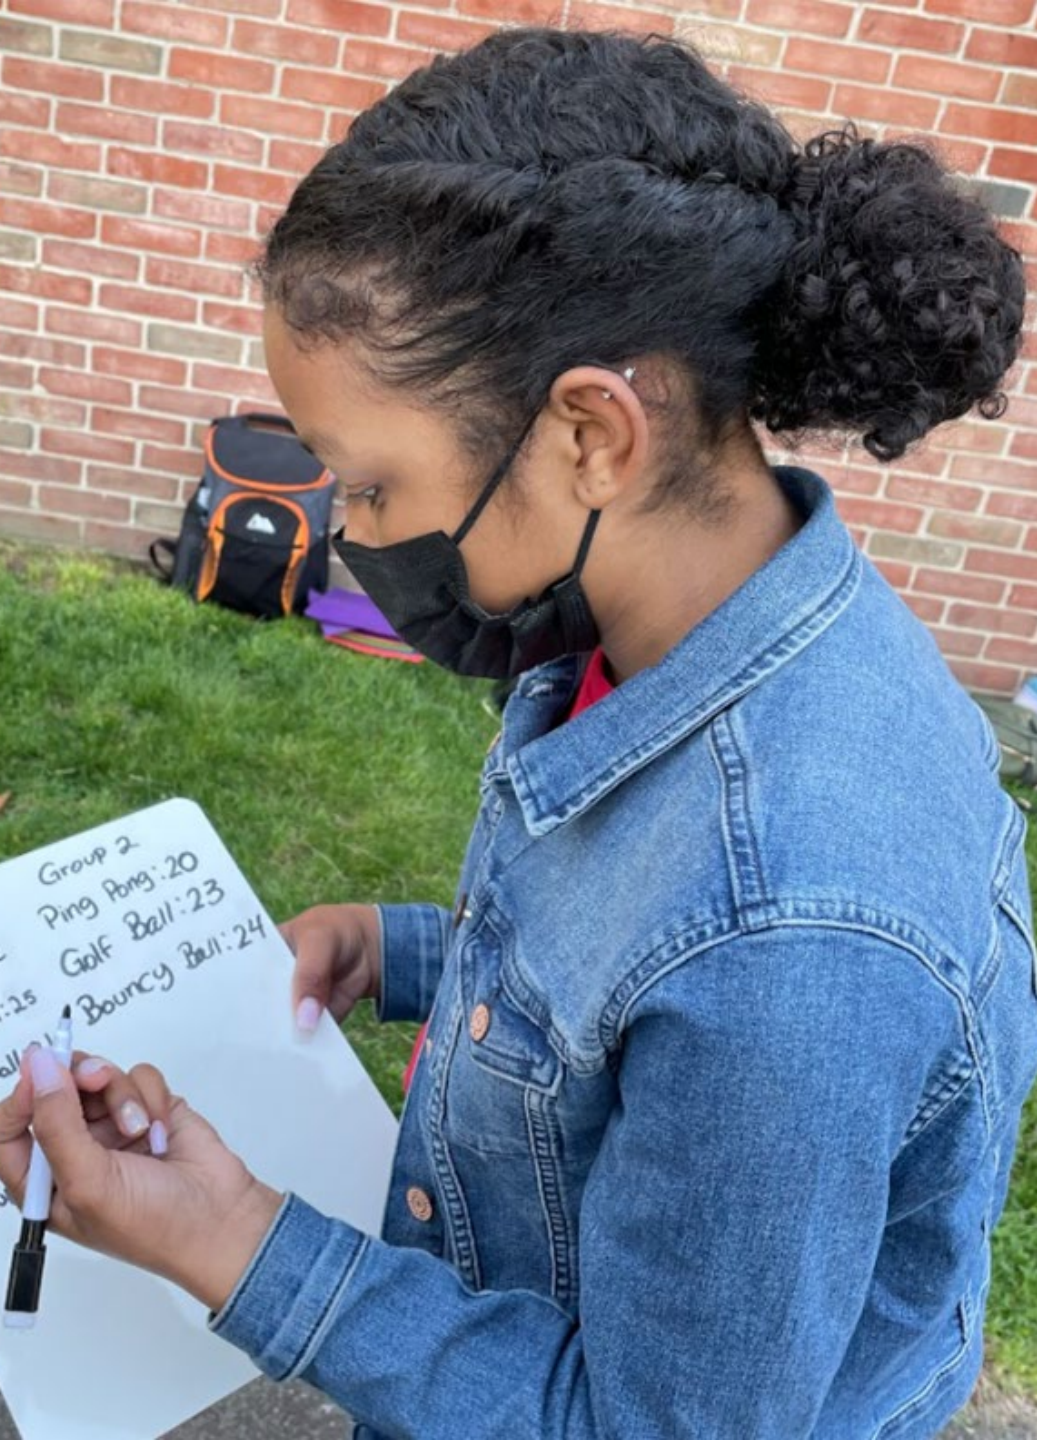 Group 2
Ping Pong: 20
Golf Ball: 23
Bouncy Ball: 24
: 25